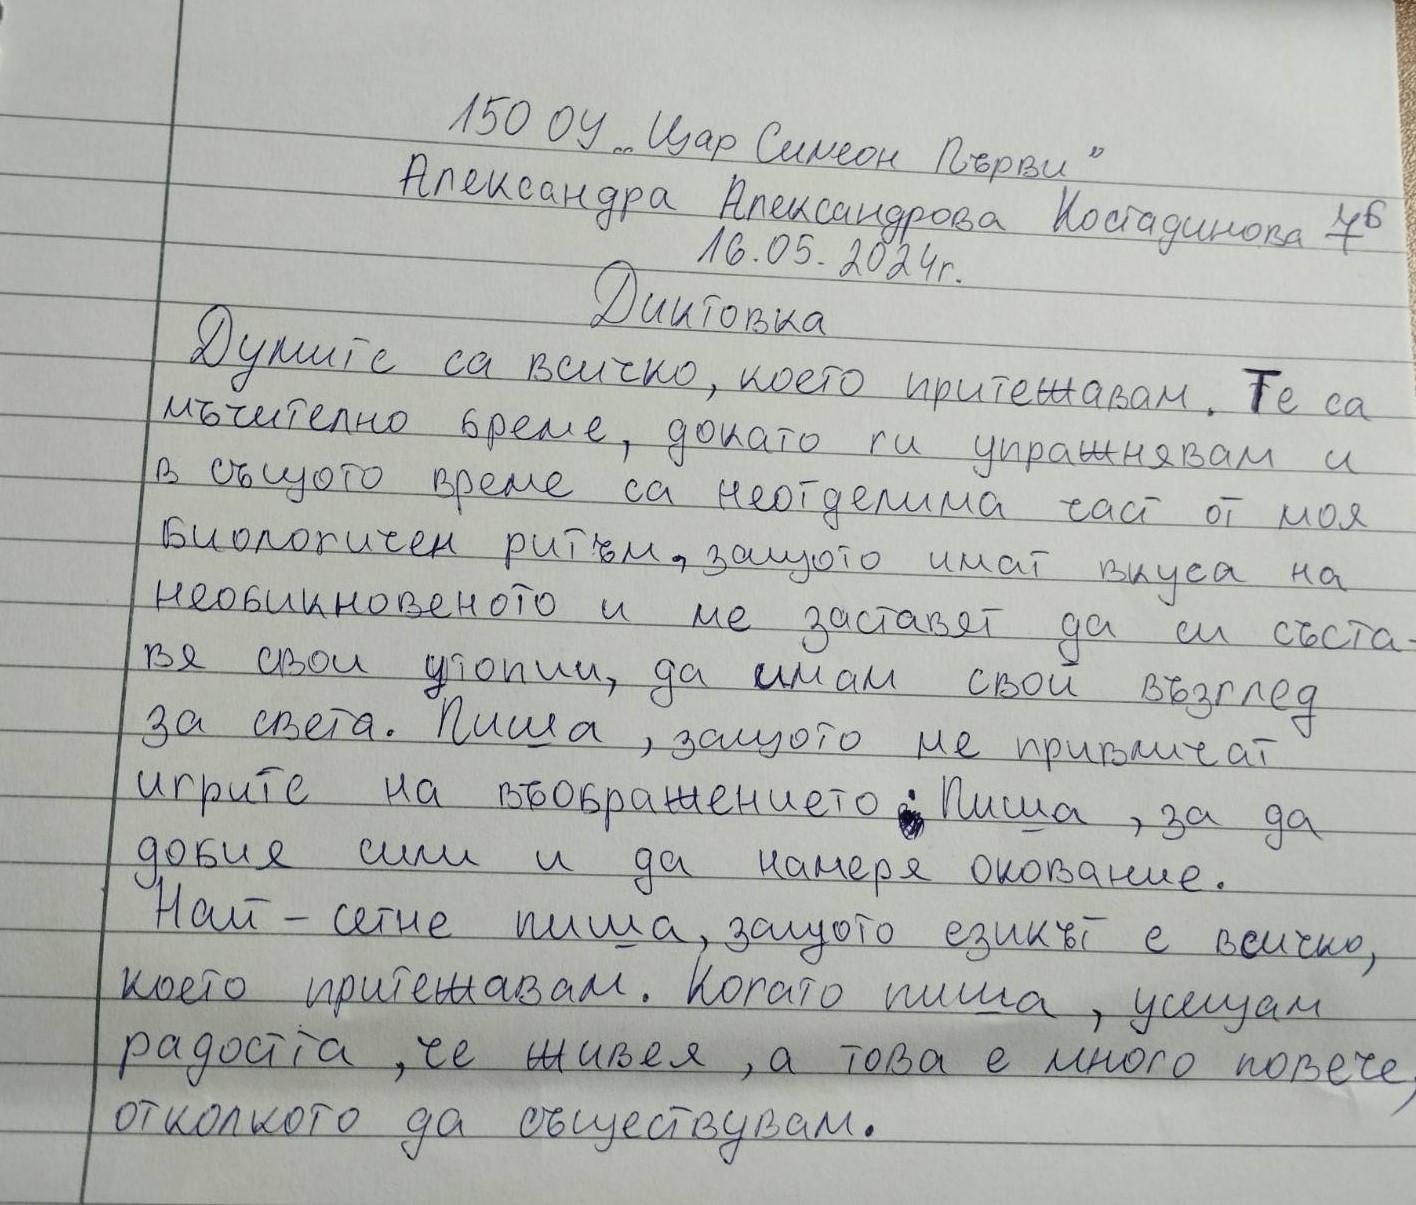 150 ОУ „Цар Симеон Първи”
Александра Александрова Костадинова 7б
16.05.2024г.
Диктовка
Думите са всичко, което притежавам. Те са
мъчително бреме, докато ги упражнявам и
в същото време са неотделима част от моя
биологичен ритъм, защото имат вкуса на
необикновеното и ме заставят да си съста-
вя свои утопии, да имам свой възглед
за света. Пиша, защото ме привличат
игрите на въображението. Пиша, за да
добия сили и да намеря окование.
Най-сетне пиша, защото езикът е всичко,
което притежавам. Когато пиша, усещам
радостта, че живея, а това е много повече,
отколкото да съществувам.